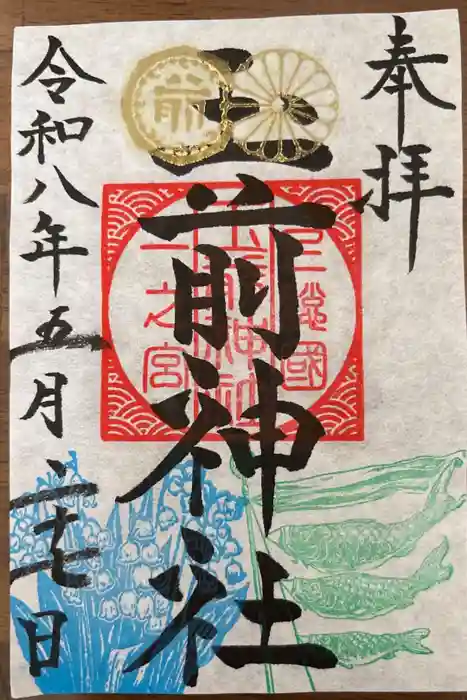 奉拝
玉前神社
令和八年五月二十七日
上總國
玉前神社
一之宮
前